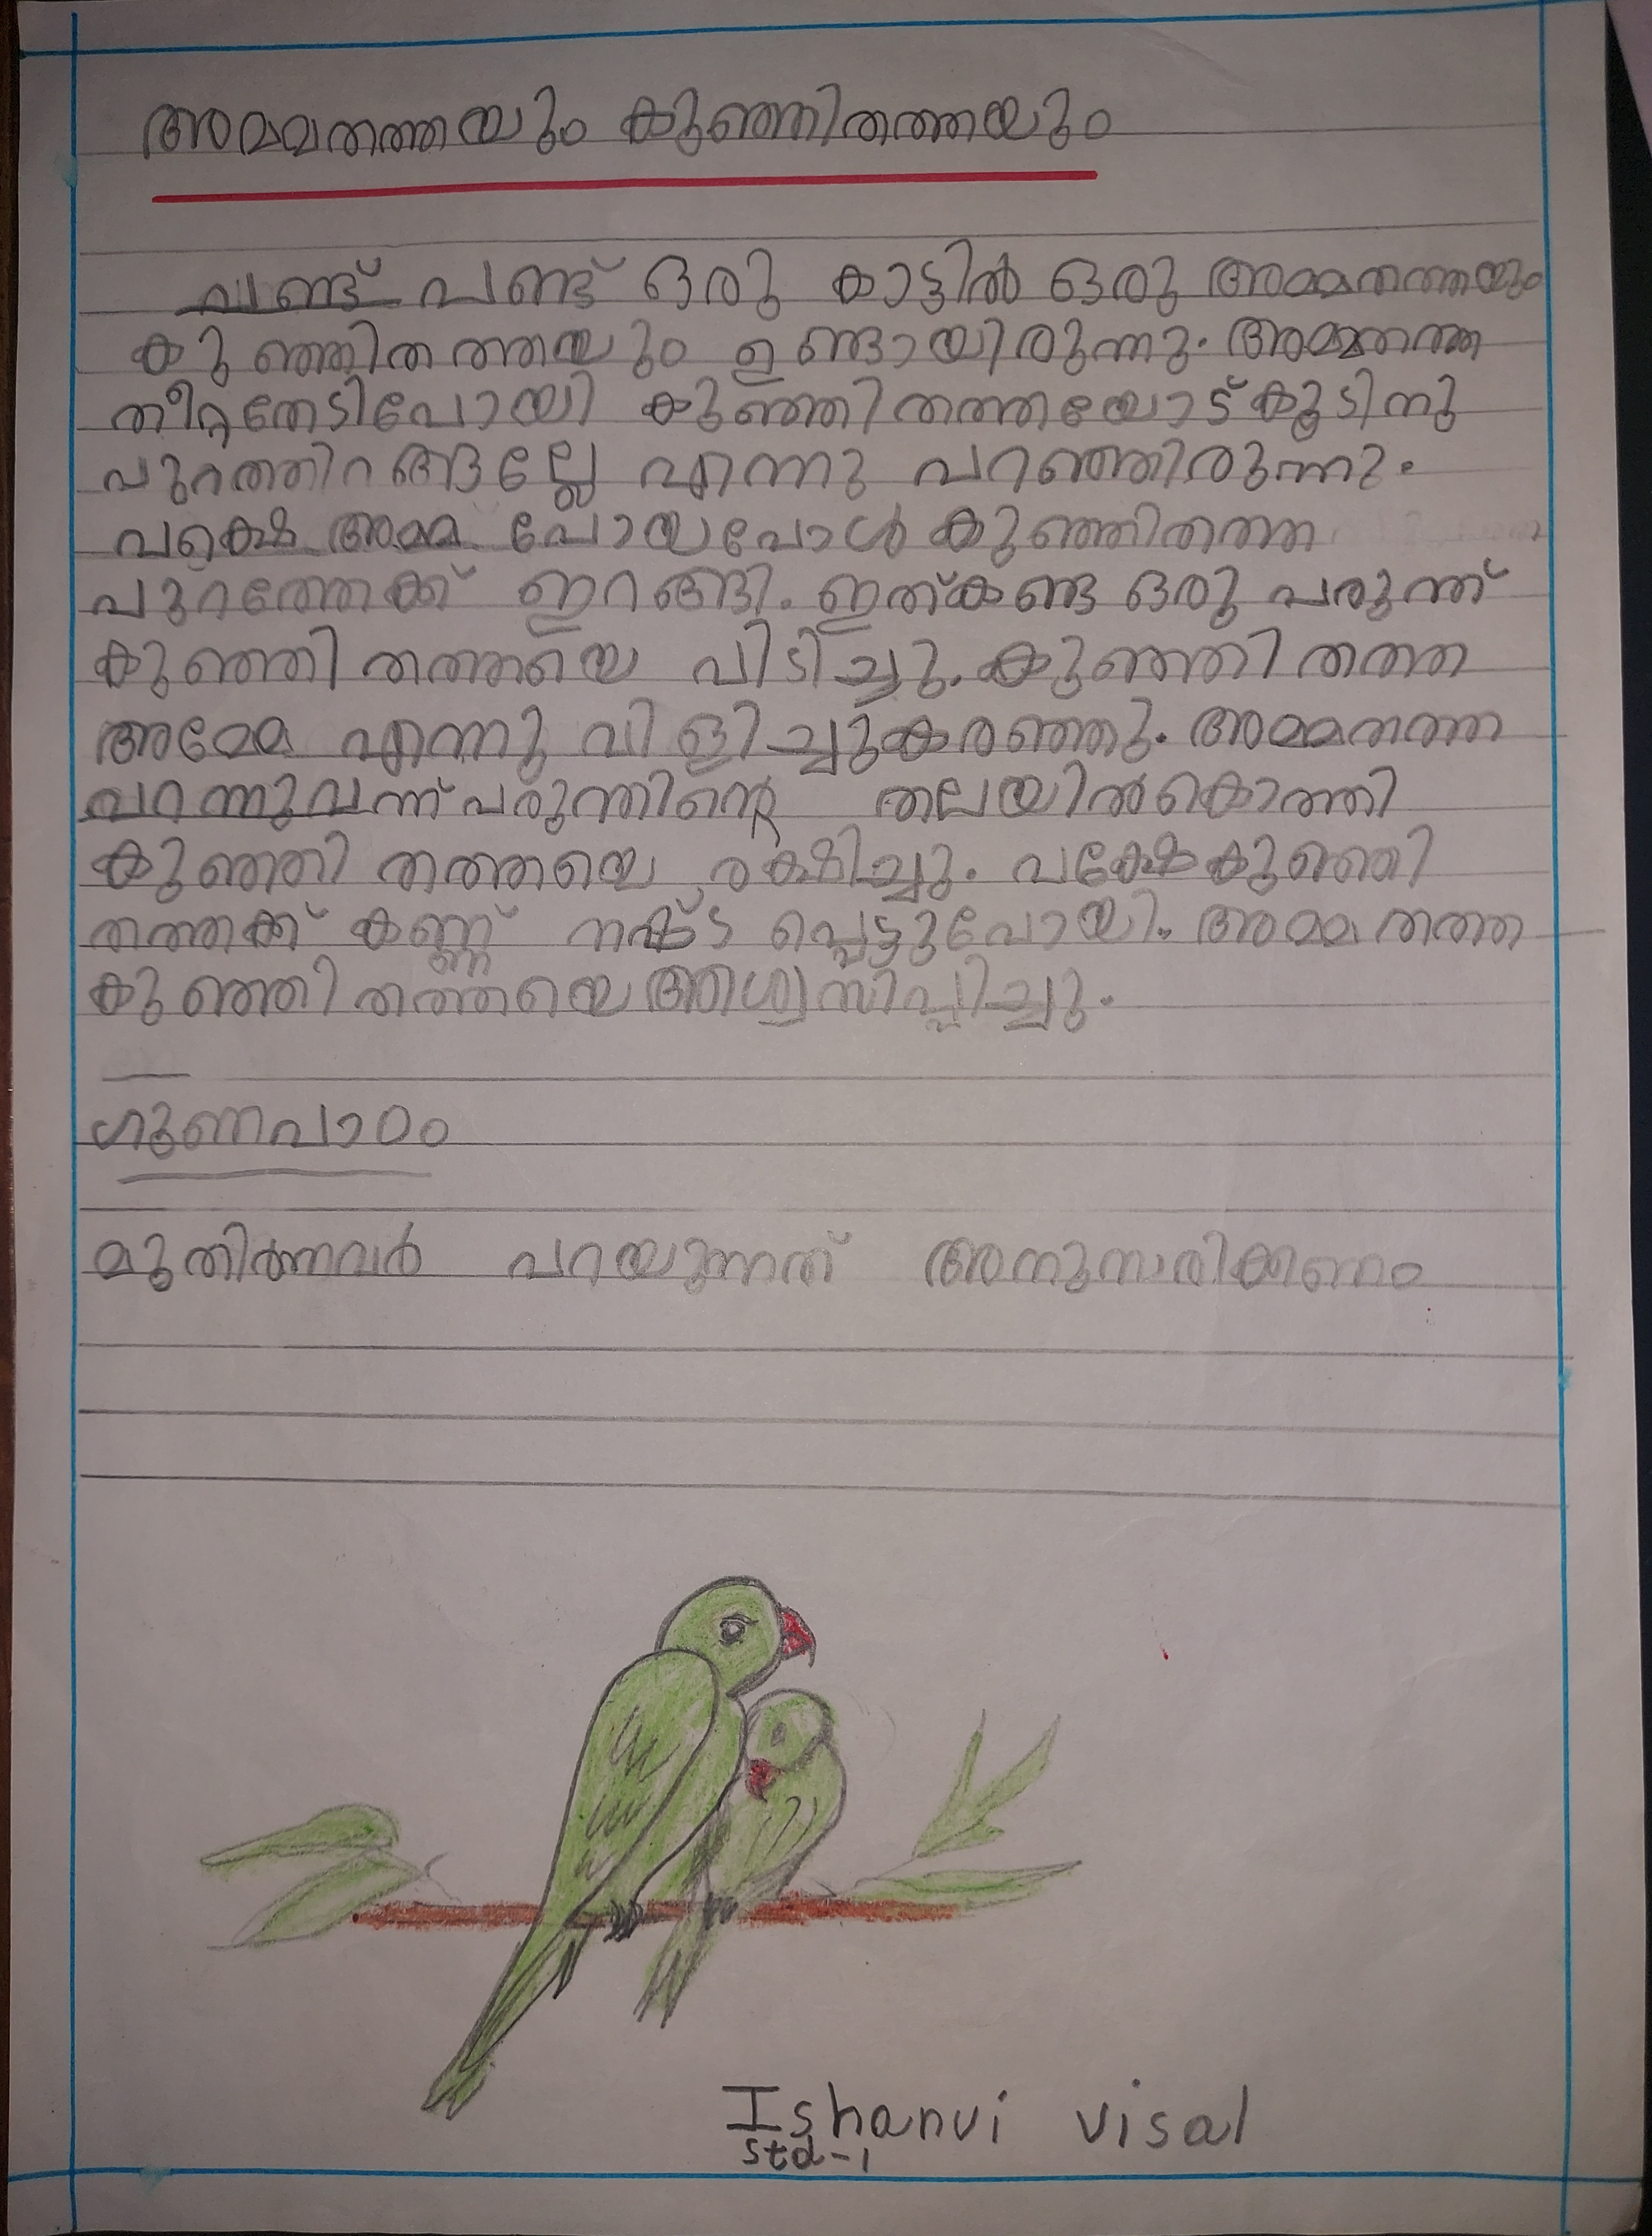 അമ്മതത്തയും കുഞ്ഞിതത്തയും
പണ്ട് പണ്ട് ഒരു കാട്ടിൽ ഒരു അമ്മതത്തയും
കുഞ്ഞിതത്തയും ഉണ്ടായിരുന്നു. അമ്മതത്ത
തീറ്റതേടിപോയി കുഞ്ഞിതത്തയോട് കൂടിനു
പുറത്തിറങ്ങല്ലേ എന്നു പറഞ്ഞിരുന്നു.
പക്ഷെ അമ്മ പോയപോൾ കുഞ്ഞിതത്ത
പുറത്തേക്ക് ഇറങ്ങി. ഇത്കണ്ട ഒരു പരുന്ത്
കുഞ്ഞി തത്തയെ പിടിച്ചു. കുഞ്ഞി തത്ത
അമ്മേ എന്നു വിളിച്ചുകരഞ്ഞു. അമ്മതത്ത
പറന്നുവന്ന് പരുന്തിന്റെ തലയിൽകൊത്തി
കുഞ്ഞി തത്തയെ രക്ഷിച്ചു. പക്ഷേകുഞ്ഞി
തത്തക്ക് കണ്ണ് നഷ്ട പ്പെട്ടുപോയി. അമ്മ തത്ത
കുഞ്ഞി തത്തയെ ആശ്വസിപ്പിച്ചു.
ഗുണപാഠം
മുതിർന്നവർ പറയുന്നത് അനുസരിക്കണം
Ishanvi visal
std-1